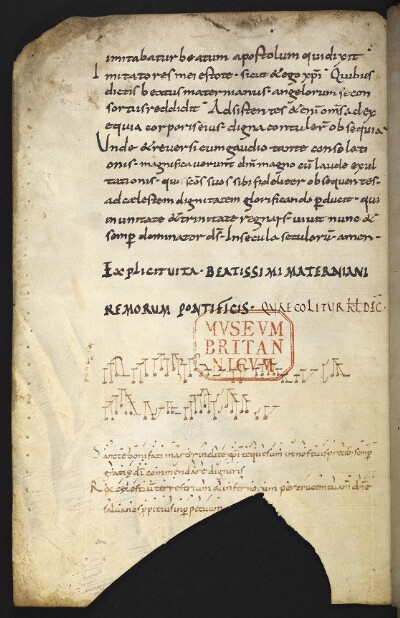 imitabatur beatum apostolum qui dixit
Imitatores mei estote · sicut & ego xp̄i · Quibus
dictis beatus maternianus · angelorum se con
sortiis reddidit · Adsistentes & enī om̄s ad ex
equia corporis eius · digna contuler̄ obsequia
Unde & reuersi cum gaudio tante consolati
onis · magnificauerunt dn̄m magno cū laude exul
tationis · qui sc̄os suos sibi fideliter obsequentes ·
ad cęlestem dignitatem glorificando p̄ducit · qui
in unitate & trinitate regnans · uiuit nunc &
semp̄ dominator dn̄s · In secula seculorū amen ·
EXPLICIT UITA · BEATISSIMI MATERNIANI
REMORUM PONTIFICIS · QUAE COLITUR KL DEC ·
MVSEVM
BRITAN
NICVM
Sancte bonifati martyr inclite xp̄i te quesum ut nos tuis precib semp
gratię dī commendare digneris
Rex
salua nos